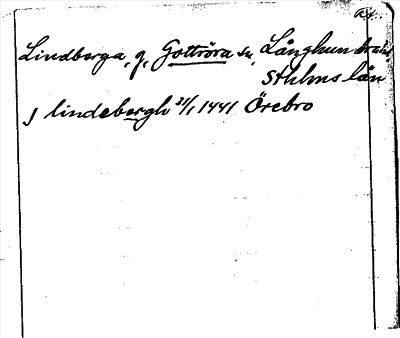 Lindberga, g, Gottröra sn, Långhundra hd
Sthlms län
J lindebergh 21/1 1441 Örebro